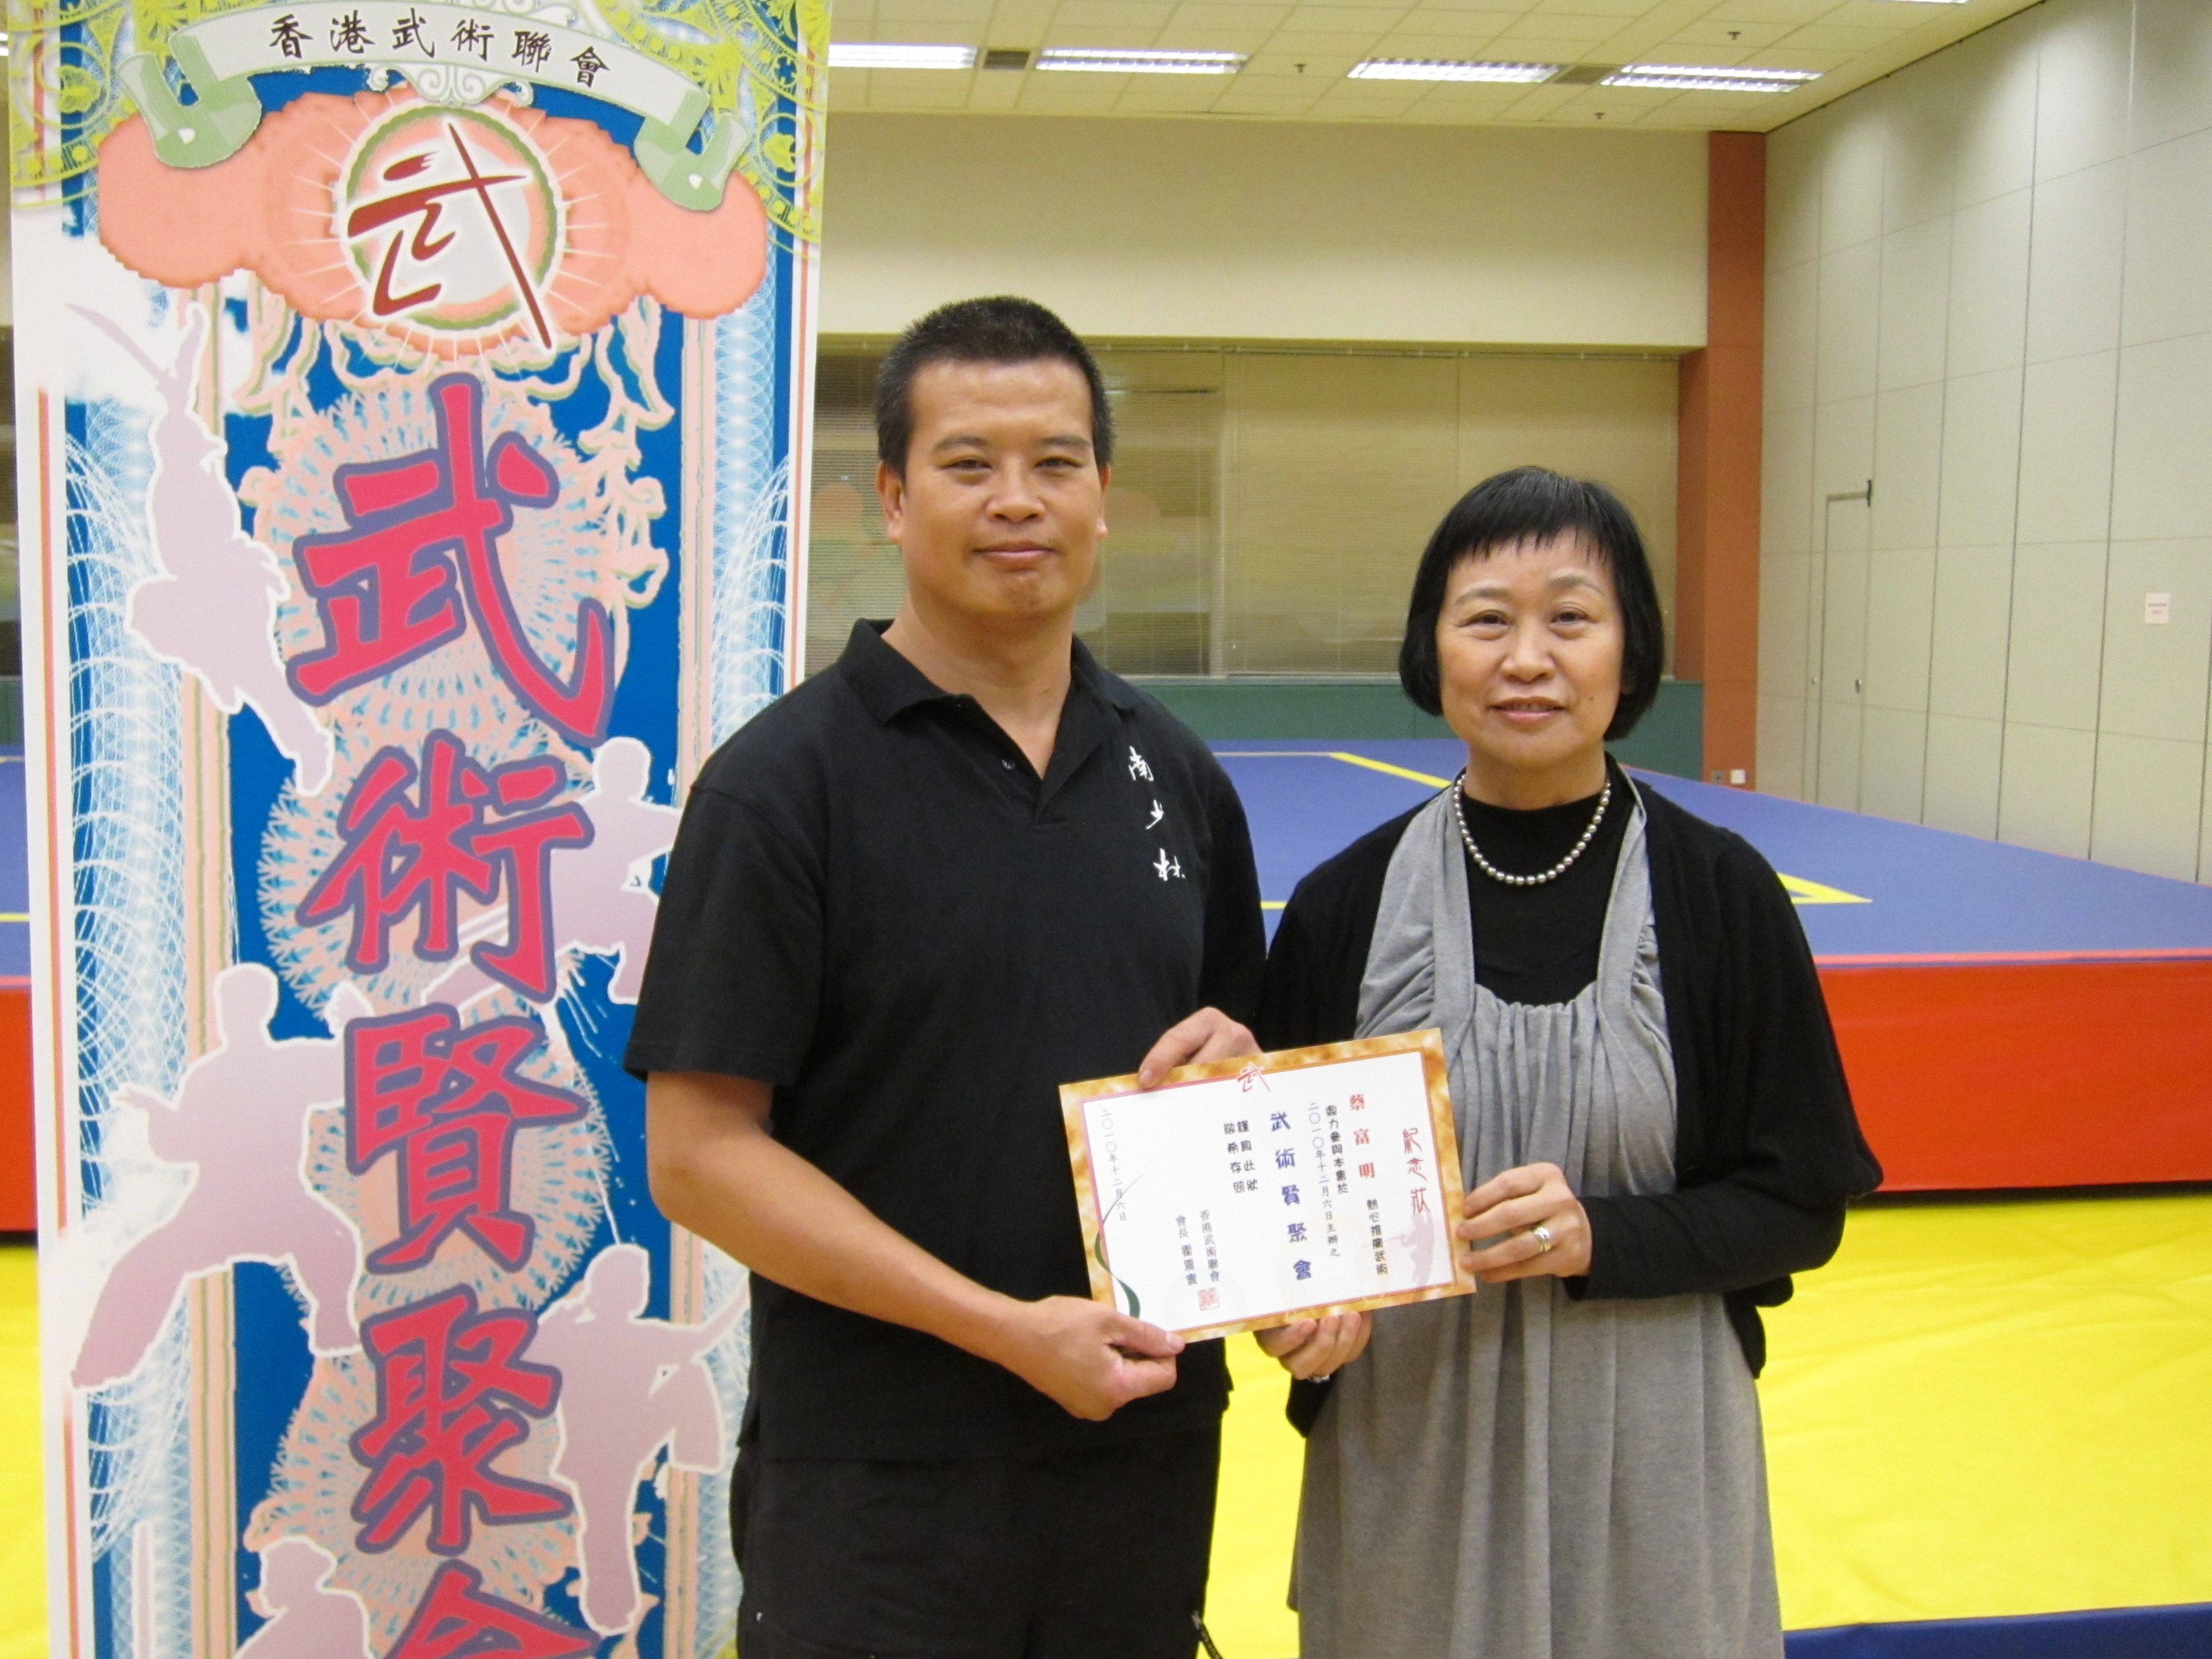 香港武術聯會
武
武術賢聚會
南少林
武
紀念狀
蔡富明 熱心推廣武術
鼎力參與本會於
二〇一〇年十二月六日主辦之
武術賢聚會
謹具此狀
敬希存照
香港武術聯會
會長 霍震寰
二〇一〇年十二月六日